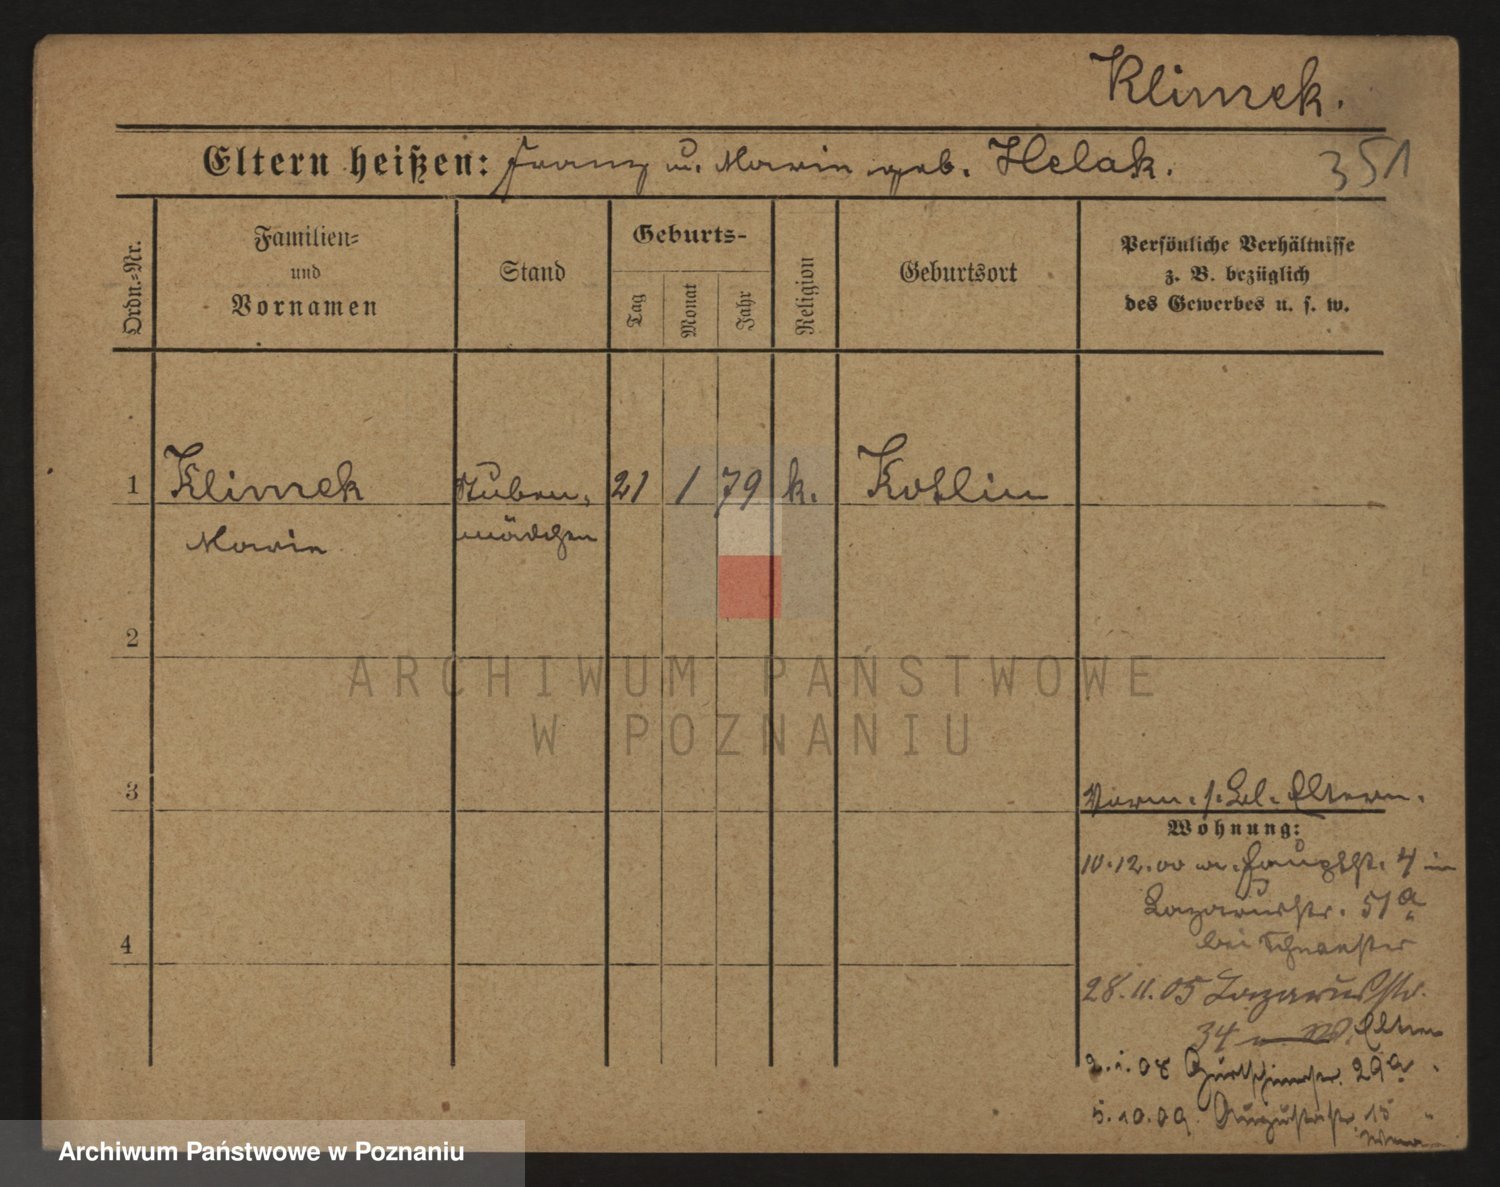 Klimek.
Eltern heißen: Franz u. Marie geb. Helak.
351
Ordn.=Nr.
Familien=
und
Vornamen
Stand
Geburts-
Tag
Monat
Jahr
Religion
Geburtsort
Persönliche Verhältnisse
z. B. bezüglich
des Gewerbes u. s. w.
1 Klimek Stuben- 21 1 79 k. Koslin
Marie mädchen
2
ARCHIWUM PAŃSTWOWE
W POZNANIU
3
Eltern.
Wohnung:
10.12.00 Hauptstr. 4 in
Lazarusstr. 51a
bei Schwester
4
28.11.05 Lazarusstr.
34 Eltern
2.1.08 29a
5.10.09 Augustastr. 15
Archiwum Państwowe w Poznaniu